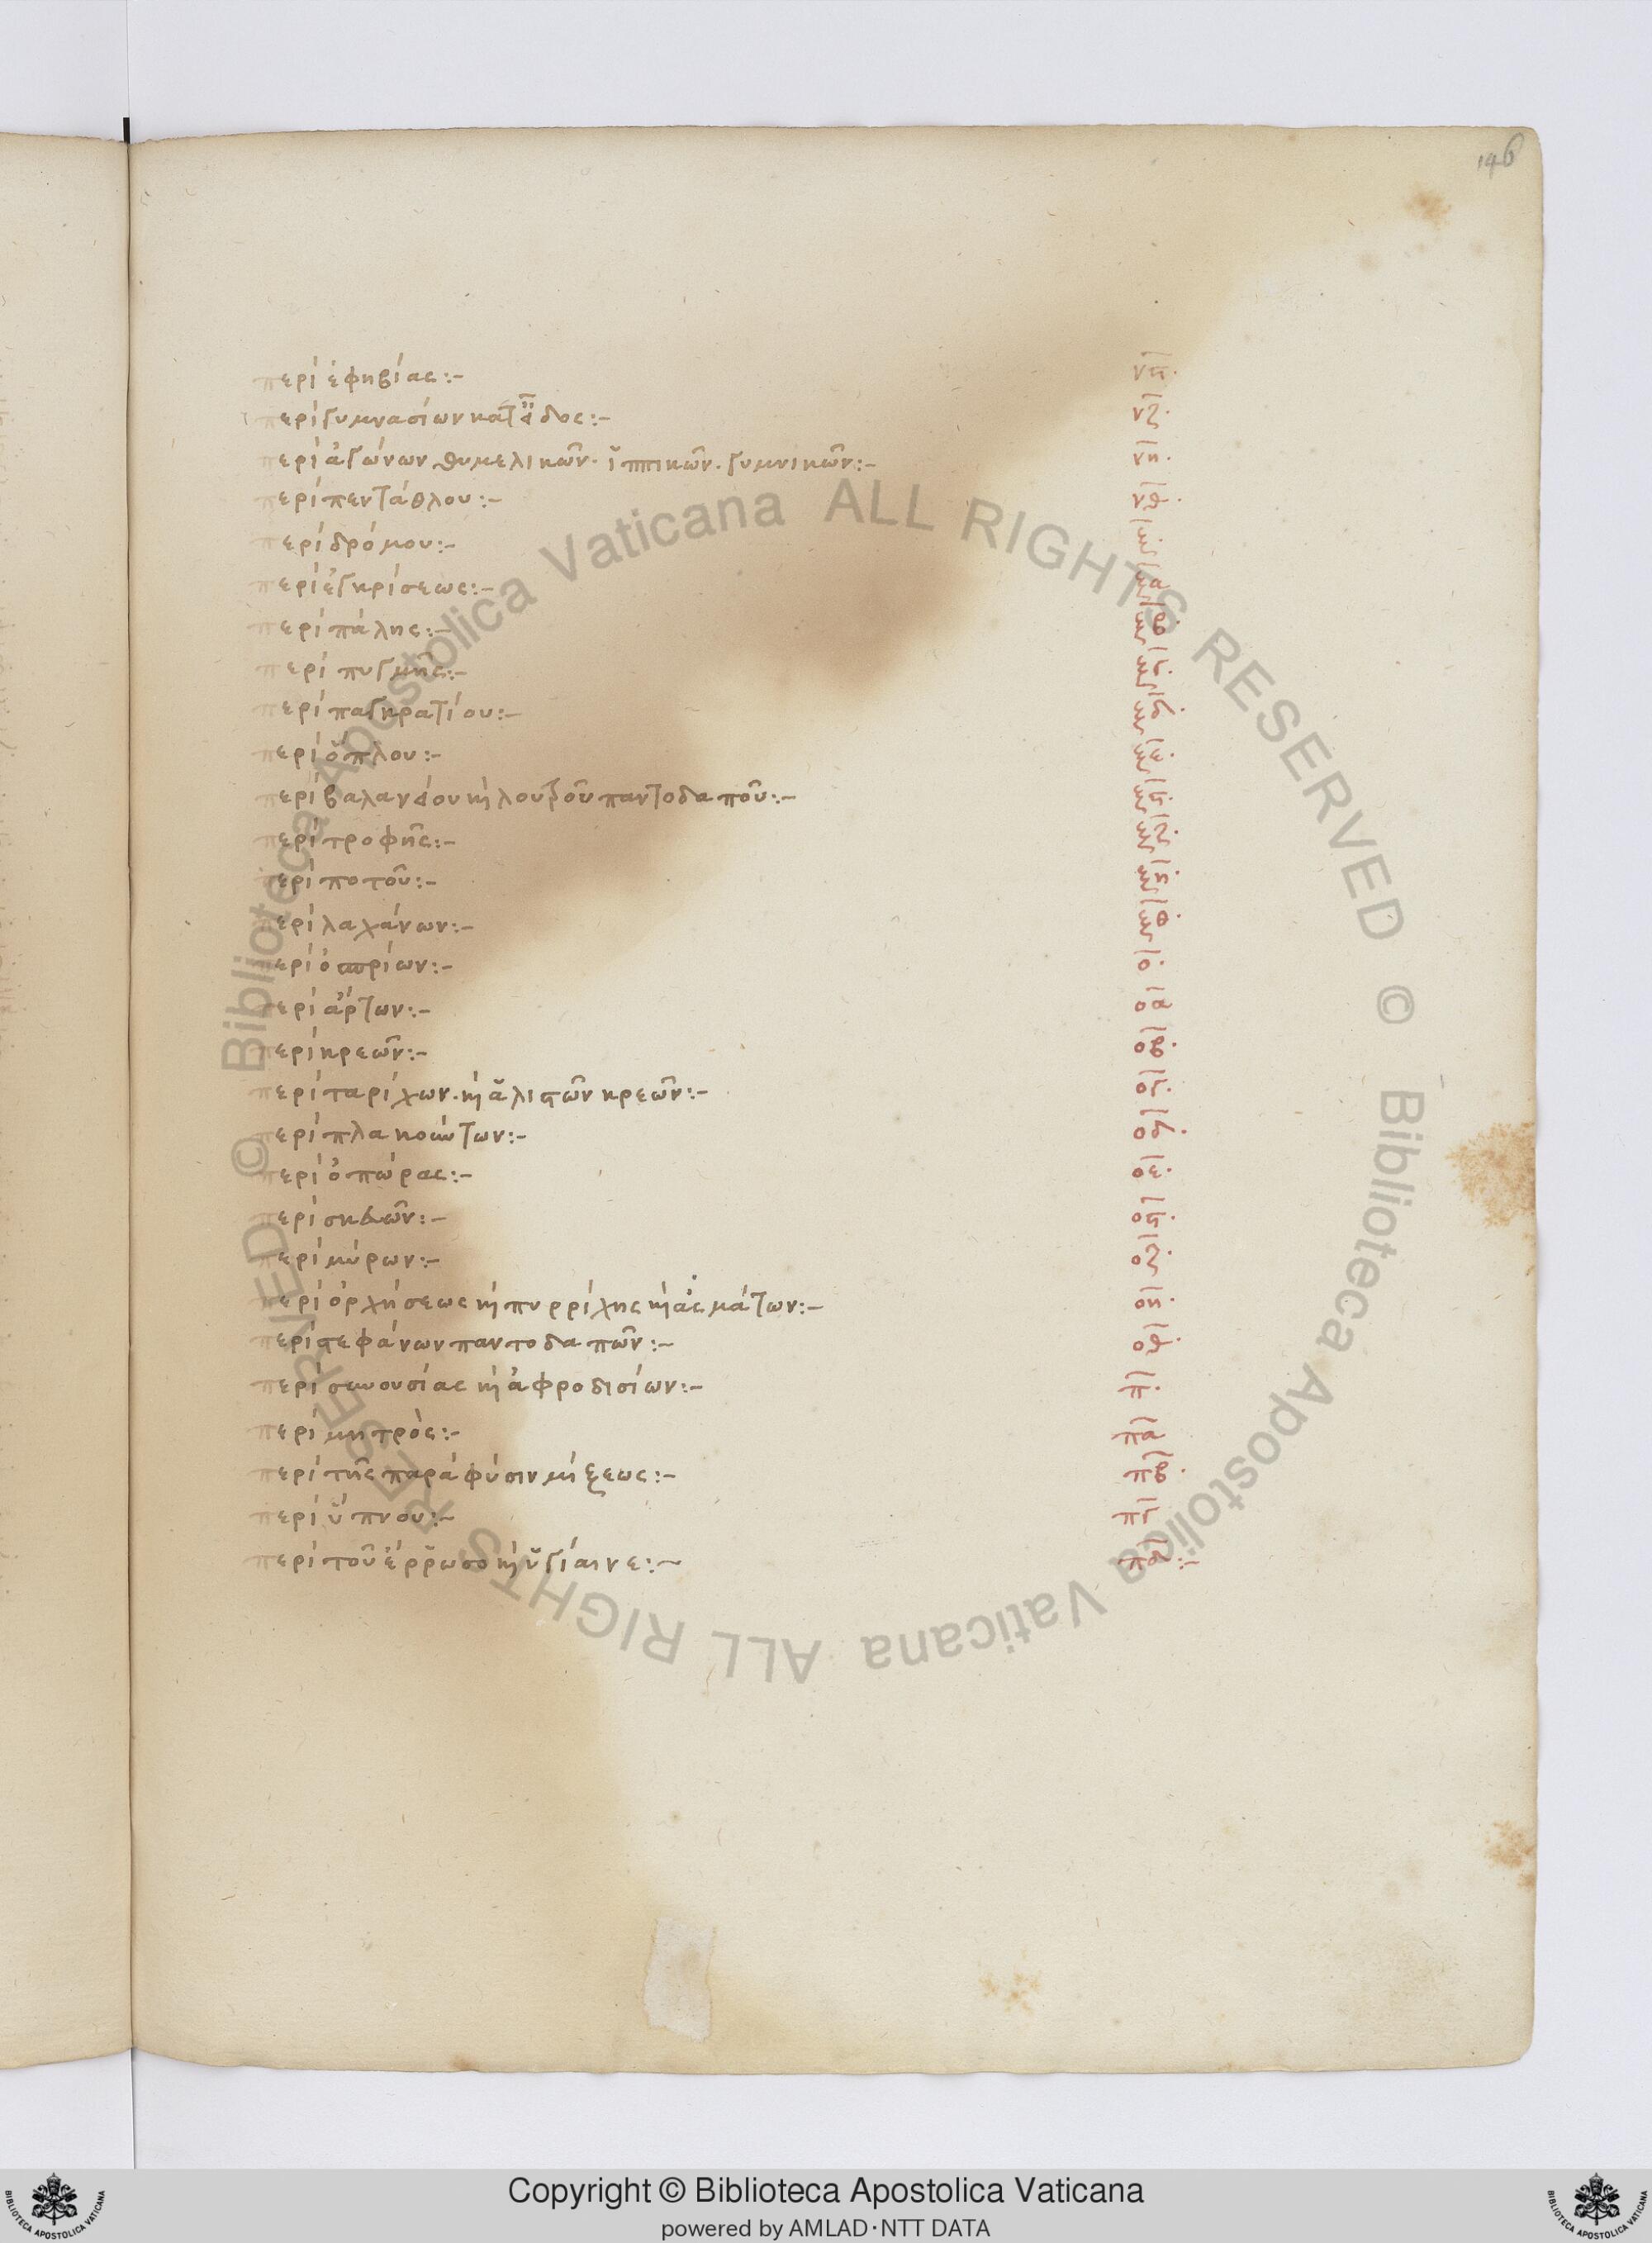 146
περὶ ἐφηβίας:– νϛ·
περὶ γυμνασίων κατ εἶδος:– νζ·
περὶ ἀγώνων θυμελικῶν· ἱππικῶν· γυμνικῶν:– νη·
περὶ πεντάθλου:– νθ·
περὶ δρόμου:– ξ
περὶ ἐγκρίσεως:– ξα
περὶ πάλης:– ξβ
περὶ πυγμῆς:– ξγ
περὶ παγκρατίου:– ξδ·
περὶ ὅπλου:– ξε·
περὶ βαλανείου κὴ λουτροῦ παντοδαποῦ:– ξϛ·
περὶ τροφῆς:– ξζ·
περὶ ποτοῦ:– ξη·
περὶ λαχάνων:– ξθ·
περὶ ὀσπρίων:– ο·
περὶ ἄρτων:– οα
περὶ κρεῶν:– οβ·
περὶ ταρίχων· κὴ ἁλιστῶν κρεῶν:– ογ·
περὶ πλακούντων:– οδ·
περὶ ὀπώρας:– οε·
περὶ σηκῶν:– οϛ·
περὶ μύρων:– οζ·
περὶ ὀρχήσεως κὴ πυρρίχης κὴ ἀσμάτων:– οη·
περὶ στεφάνων παντοδαπῶν:– οθ·
περὶ συνουσίας κὴ ἀφροδισίων:– π·
περὶ μητρὸς:– πα
περὶ τῆς παρά φύσιν μίξεως:– πβ·
περὶ ὕπνου:– πγ
περὶ τοῦ ἔρρωσο κὴ ὑγίαινε:– πδ:–
© Biblioteca Apostolica Vaticana ALL RIGHTS RESERVED © Biblioteca Apostolica Vaticana ALL RIGHTS RESERVED
Copyright © Biblioteca Apostolica Vaticana
powered by AMLAD·NTT DATA
BIBLIOTECA APOSTOLICA VATICANA
BIBLIOTECA APOSTOLICA VATICANA